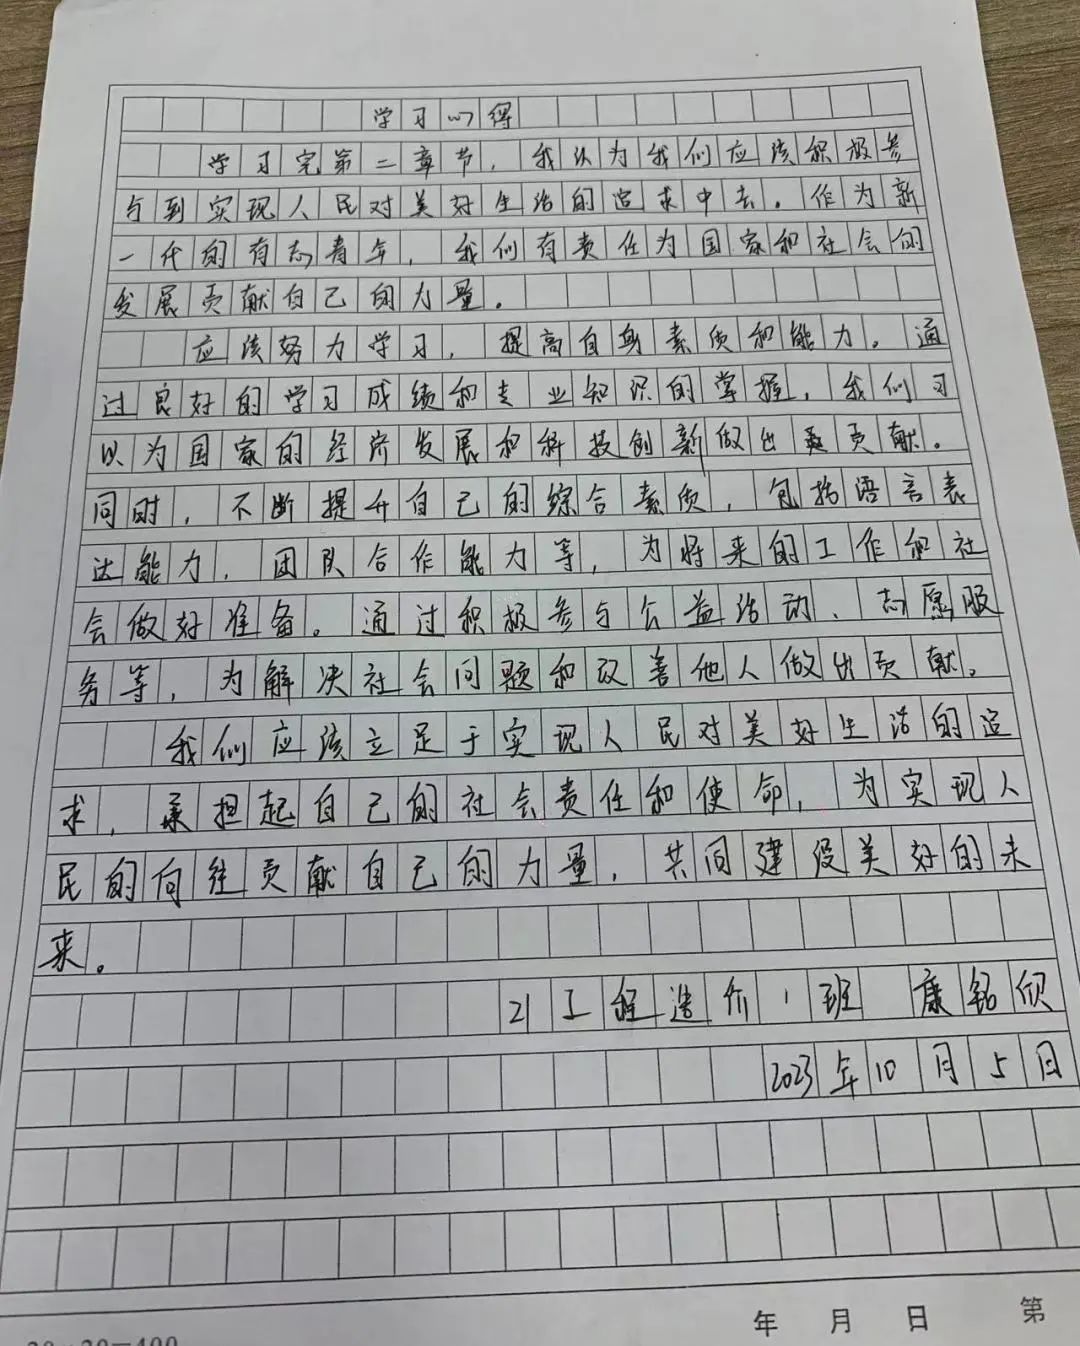 学习心得
学习完第二章节，我认为我们应该积极参
与到实现人民对美好生活的追求中去。作为新
一代的有志青年，我们有责任为国家和社会的
发展贡献自己的力量。
应该努力学习，提高自身素质和能力。通
过良好的学习成绩和专业知识的掌握，我们可
以为国家的经济发展和科技创新做出贡献。
同时，不断提升自己的综合素质，包括语言表
达能力，团队合作能力等，为将来的工作和社
会做好准备。通过积极参与公益活动、志愿服
务等，为解决社会问题和改善他人做出贡献。
我们应该立足于实现人民对美好生活的追
求，承担起自己的社会责任和使命，为实现人
民的向往贡献自己的力量，共同建设美好的未
来。
21工程造价1班 康铭欣
2023年10月5日
年 月 日 第
20×20=400